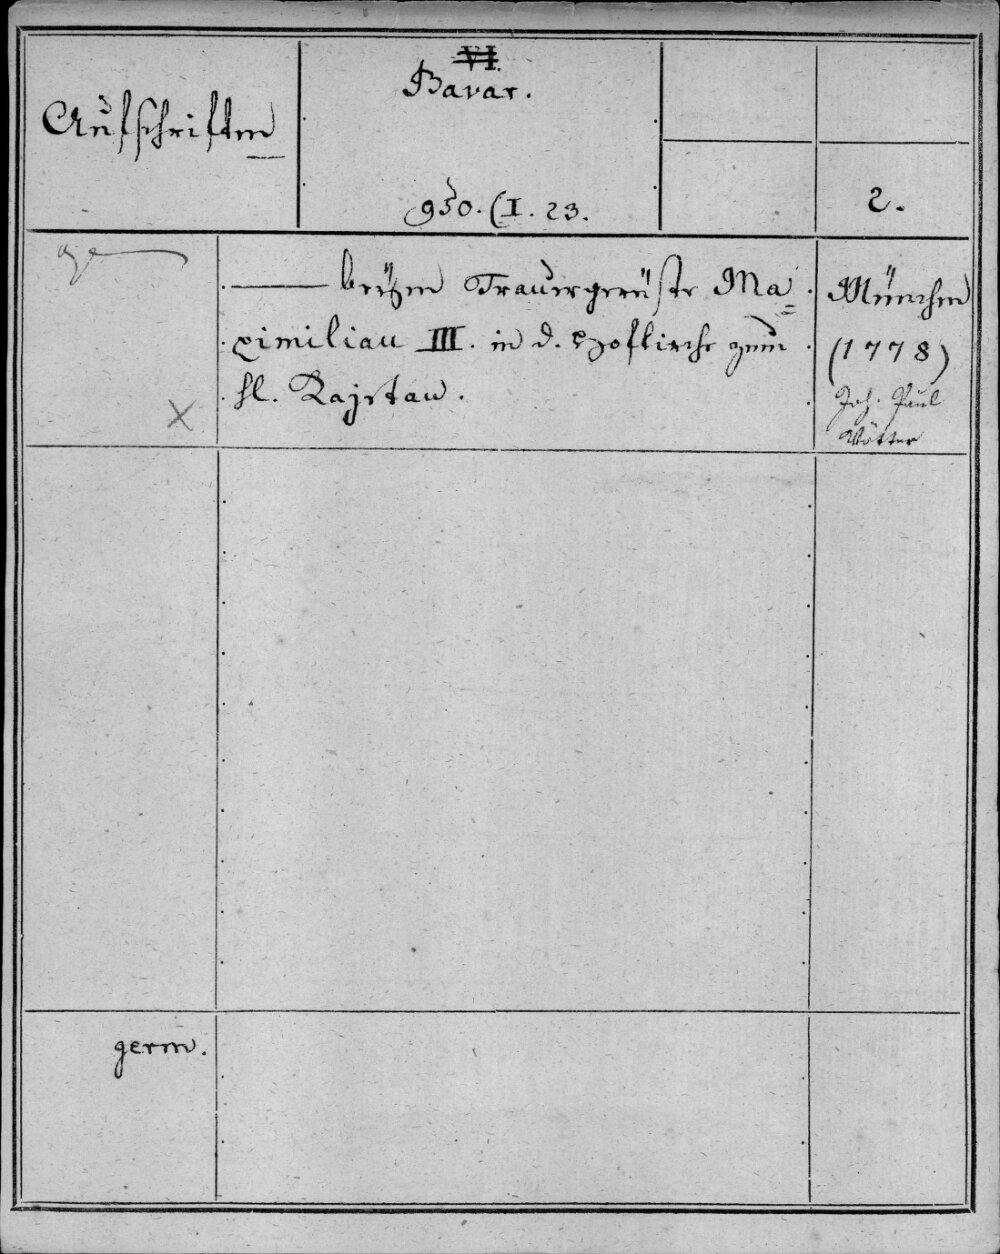 Aufschriften
VI.
Bavar.
950. (I. 23.
2.
—— beÿm Trauergerüste Ma=
ximilian III. in d. Hofkirche zum
hl. Kajetan.
München
(1778)
Joh. Paul
Vötter
X
germ.